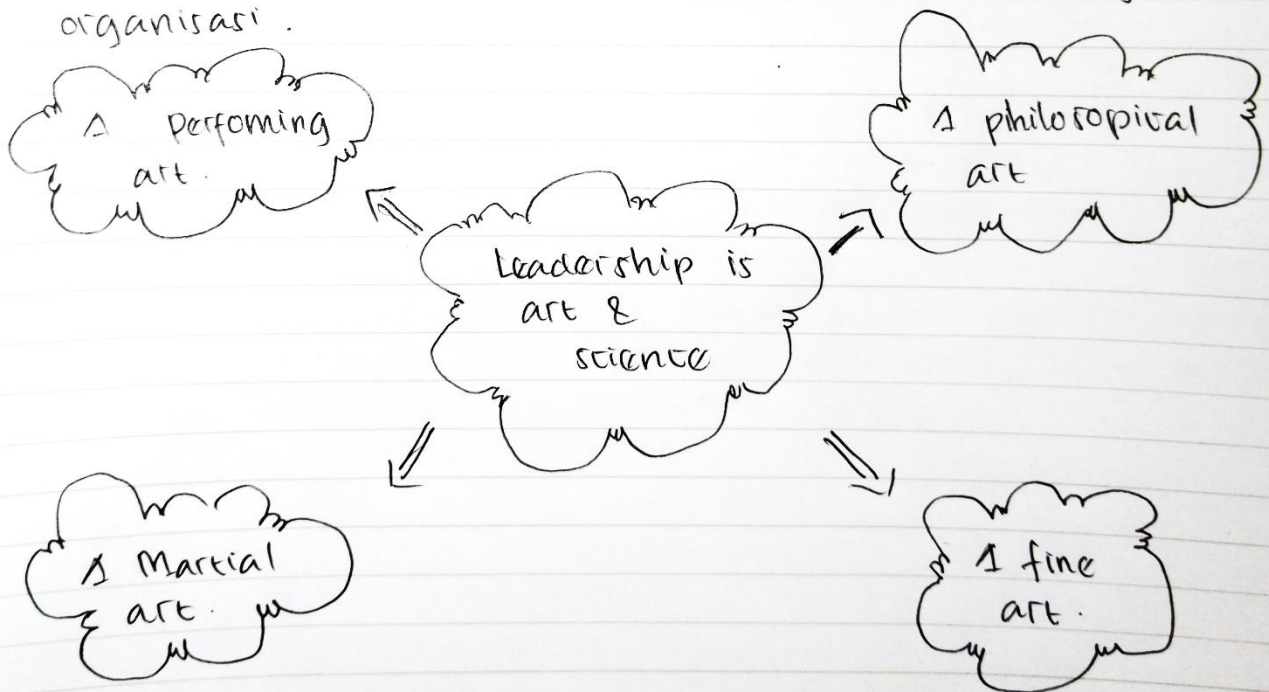 organisasi.
A Perfoming
art.
A philosopical
art
Leadership is
art &
science
A Martial
art.
A fine
art.